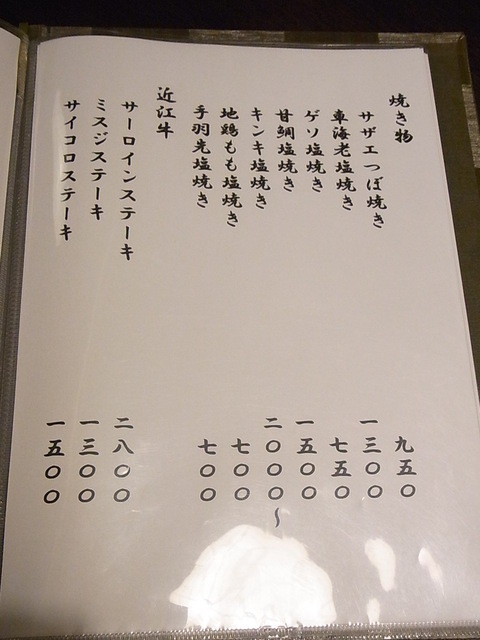 焼き物
サザエつぼ焼き 九五〇
車海老塩焼き 一三〇〇
ゲソ塩焼き 七五〇
甘鯛塩焼き 一五〇〇
キンキ塩焼き 二〇〇〇〜
地鶏もも塩焼き 七〇〇
手羽先塩焼き 七〇〇
近江牛
サーロインステーキ 二八〇〇
ミスジステーキ 一三〇〇
サイコロステーキ 一五〇〇